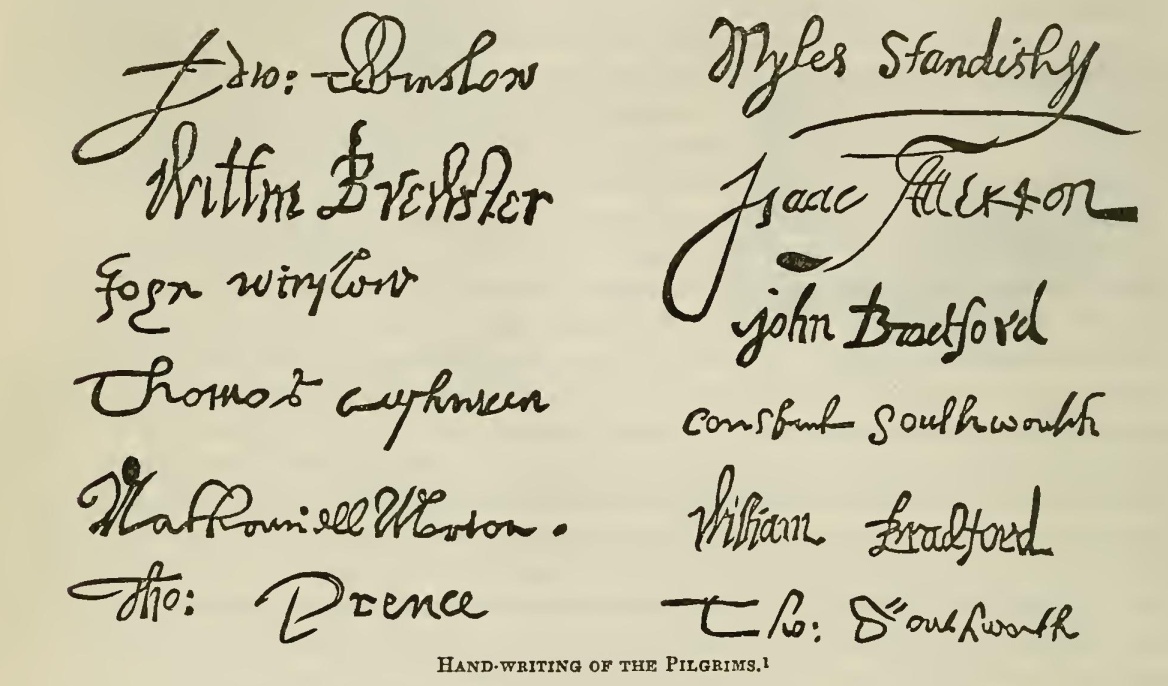 Edw: Winslow
Willm Brewster
John winslow
Thomas Cushman
Nathaniell Morton.
Tho: Prence
Myles Standish
Isaac Allerton
john Bradford
constant Southworth
William Bradford
Tho: Southworth
HAND-WRITING OF THE PILGRIMS.¹